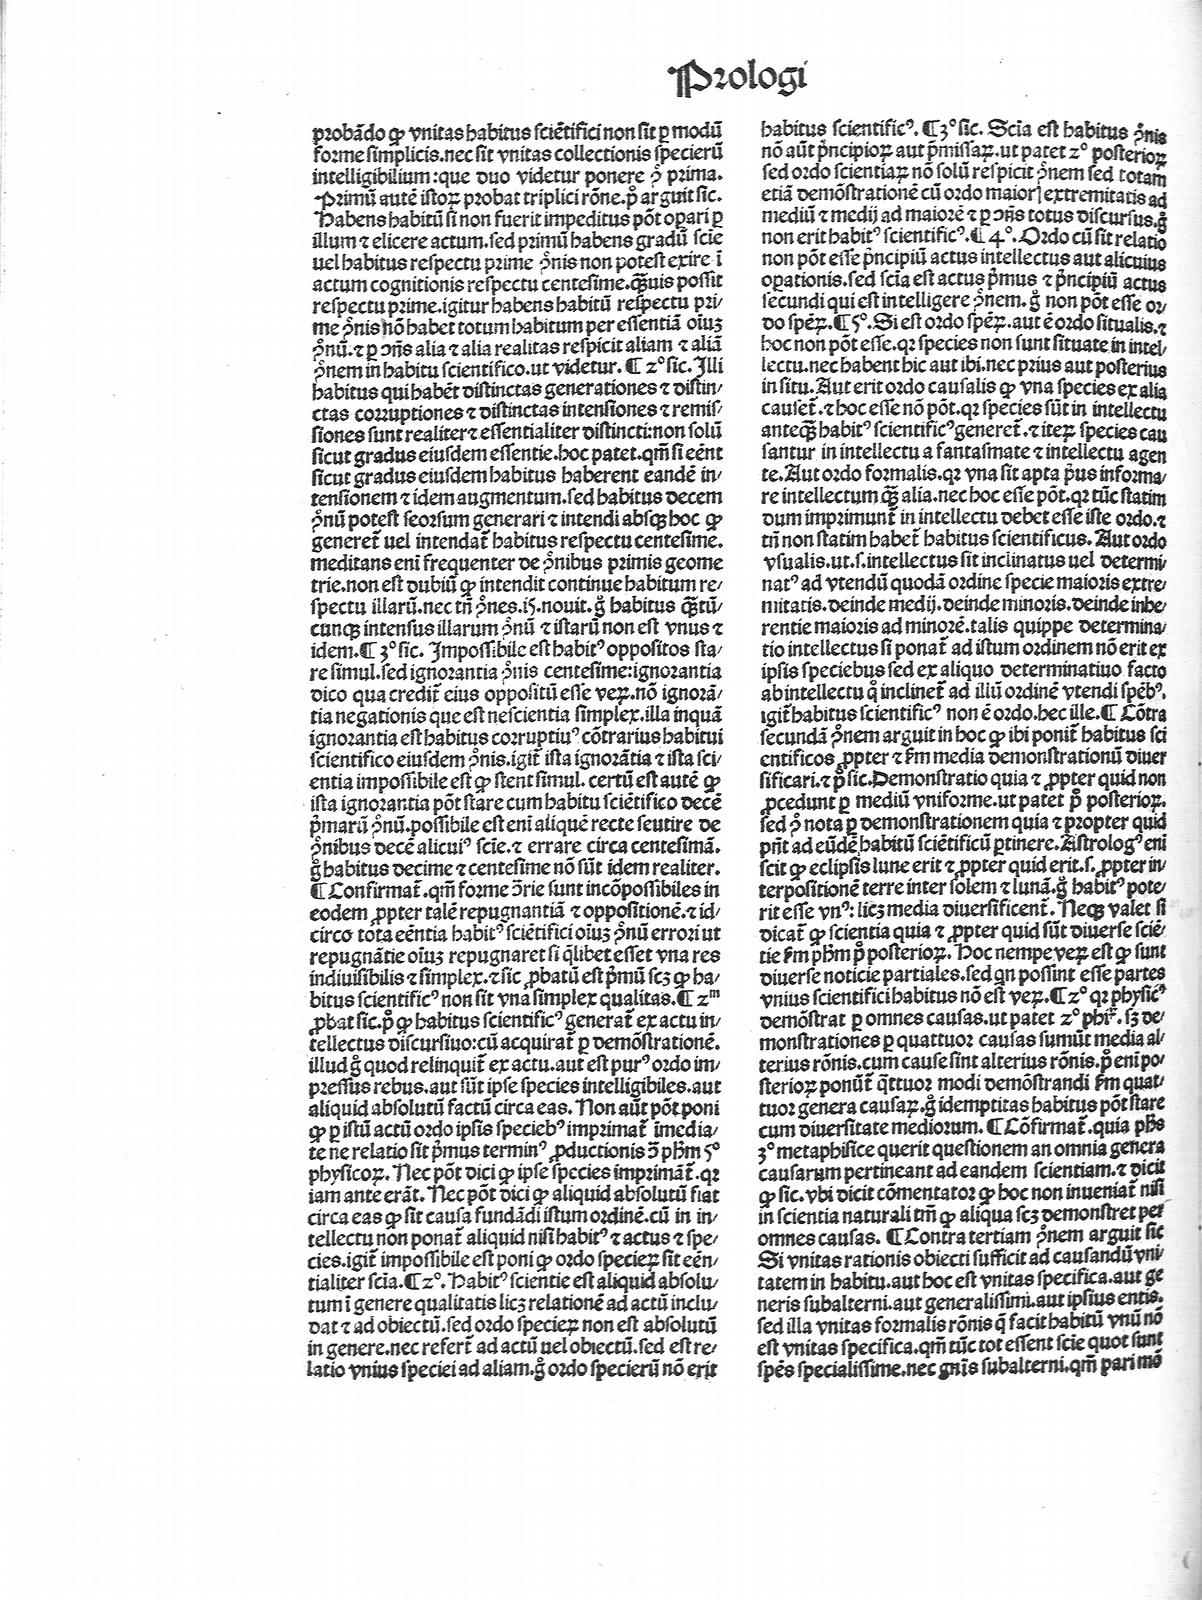 Prologi
probādo ꝙ vnitas habitus sciētifici non sit ꝑ modū
forme simplicis.nec sit vnitas collectionis specierū
intelligibilium:que duo videtur ponere ꝯ̊ prima.
Primū autē istoꝝ probat triplici rōne.p̊ arguit sic.
Habens habitū si non fuerit impeditus pōt oꝑari ꝑ
illum ⁊ elicere actum.sed primū habens gradū scie
uel habitus respectu prime ꝯ̊nis non potest exire ī
actum cognitionis respectu centesime.ꝙ̄uis possit
respectu prime.igitur habens habitū respectu pri/
me ꝯ̊nis nō habet totum habitum per essentiā oiuꝫ
ꝯ̊nū.⁊ ꝑ ꝯ̄ns alia ⁊ alia realitas respicit aliam ⁊ aliā
ꝯ̊nem in habitu scientifico.ut videtur. ¶ 2° sic. Illi
habitus qui habēt distinctas generationes ⁊ distin/
ctas corruptiones ⁊ distinctas intensiones ⁊ remis/
siones sunt realiter ⁊ essentialiter distincti:non solū
sicut gradus eiusdem essentie.hoc patet.qm̄ si eēnt
sicut gradus eiusdem habitus haberent eandē in/
tensionem ⁊ idem augmentum.sed habitus decem
ꝯ̊nū potest seorsum generari ⁊ intendi absqꝫ hoc ꝙ
generet̄ uel intendat̄ habitus respectu centesime.
meditans eni frequenter de ꝯ̊nibus primis geome
trie.non est dubiū ꝙ intendit continue habitum re/
spectu illarū.nec tn̄ ꝯ̊nes.15.nouit.g̊ habitus ꝙ̄tū/
cunqꝫ intensus illarum ꝯ̊nū ⁊ istarū non est vnus ⁊
idem.¶ 3° sic. Impossibile est habitꝰ oppositos sta/
re simul.sed ignorantia ꝯ̊nis centesime:ignorantia
dico qua credit̄ eius oppositū esse veꝝ.nō ignorā/
tia negationis que est nescientia simplex.illa inquā
ignorantia est habitus corruptiuꝰ cōtrarius habitui
scientifico eiusdem ꝯ̊nis.igit̄ ista ignorātia ⁊ ista sci/
entia impossibile est ꝙ stent simul. certū est autē ꝙ
ista ignorantia pōt stare cum habitu sciētifico decē
p̄marū ꝯ̊nū.possibile est eni aliquē recte sentire de
ꝯ̊nibus decē alicuiꝰ scie.⁊ errare circa centesimā.
g̊ habitus decime ⁊ centesime nō sūt idem realiter.
¶ Confirmat̄.qm̄ forme ꝯ̄rie sunt incōpossibiles in
eodem ꝓpter talē repugnantiā ⁊ oppositionē.⁊ id/
circo tota eēntia habitꝰ sciētifici oiuꝫ ꝯ̊nū errori ut
repugnātie oiuꝫ repugnaret si q̄libet esset vna res
indiuisibilis ⁊ simplex.⁊ sic ꝓbatū est p̄mū scꝫ ꝙ ha/
bitus scientificꝰ non sit vna simplex qualitas.¶ 2m
ꝓbat sic.p̊ ꝙ habitus scientificꝰ generat̄ ex actu in/
tellectus discursiuo:cū acquirat̄ ꝑ demōstrationē.
illud g̊ quod relinquit̄ ex actu.aut est purꝰ ordo im/
pressus rebus.aut sūt ipse species intelligibiles.aut
aliquid absolutū factū circa eas. Non aūt pōt poni
ꝙ ꝑ istū actū ordo ipsis speciebꝰ imprimat̄ imedia/
te ne relatio sit p̄mus terminꝰ ꝓductionis ꝯ̄ ph̄m 5°
physicoꝝ. Nec pōt dici ꝙ ipse species imprimāt̄.qꝛ
iam ante erāt. Nec pōt dici ꝙ aliquid absolutū fiat
circa eas ꝙ sit causa fundādi istum ordinē.cū in in/
tellectu non ponat̄ aliquid nisi habitꝰ ⁊ actus ⁊ spe/
cies.igit̄ impossibile est poni ꝙ ordo specieꝝ sit eēn/
tialiter scīa.¶ 2°. Habitꝰ scientie est aliquid absolu/
tum ī genere qualitatis licꝫ relationē ad actū inclu/
dat ⁊ ad obiectū.sed ordo specieꝝ non est absolutū
in genere.nec refert̄ ad actū uel obiectū.sed est re/
latio vnius speciei ad aliam.g̊ ordo specierū nō erit
habitus scientificꝰ. ¶ 3° sic. Scīa est habitus ꝯ̊nis
nō aūt p̄ncipioꝝ aut p̄missaꝝ.ut patet 2° posterioꝝ
sed ordo scientiaꝝ nō solū respicit ꝯ̊nem sed totam
etiā demōstrationē cū ordo maior extremitatis ad
mediū ⁊ medij ad maiorē ⁊ ꝑ ꝯ̄ns totus discursus.g̊
non erit habitꝰ scientificꝰ.¶ 4°. Ordo cū sit relatio
non pōt esse p̄ncipiū actus intellectus aut alicuius
oꝑationis.sed scīa est actus p̄mus ⁊ p̄ncipiū actus
secundi qui est intelligere ꝯ̊nem. g̊ non pōt esse or/
do spēꝝ.¶ 5°. Si est ordo spēꝝ.aut ē ordo situalis.⁊
hoc non pōt esse.qꝛ species non sunt situate in intel/
lectu.nec habent hic aut ibi.nec prius aut posterius
in situ. Aut erit ordo causalis ꝙ vna species ex alia
causet̄.⁊ hoc esse nō pōt.qꝛ species sūt in intellectu
anteꝙ̄ habitꝰ scientificꝰ generet̄.⁊ iteꝝ species cau
santur in intellectu a fantasmate ⁊ intellectu agen
te. Aut ordo formalis.qꝛ vna sit apta p̄us informa/
re intellectum ꝙ̄ alia.nec hoc esse pōt.qꝛ tūc statim
dum imprimunt̄ in intellectu debet esse iste ordo.⁊
tn̄ non statim habet̄ habitus scientificus. Aut ordo
vsualis.ut.s.intellectus sit inclinatus uel determi/
natꝰ ad vtendū quodā ordine specie maioris extre/
mitatis.deinde medij.deinde minoris.deinde inhe/
rentie maioris ad minorē.talis quippe determina/
tio intellectus si ponat̄ ad istum ordinem nō erit ex
ipsis speciebus sed ex aliquo determinatiuo facto
ab intellectu q̊ inclinet̄ ad illū ordinē vtendi spēbꝰ.
igit̄ habitus scientificꝰ non ē ordo.hec ille.¶ Cōtra
secundā ꝯ̊nem arguit in hoc ꝙ ibi ponit̄ habitus sci
entificos ꝓpter ⁊ s̄m media demonstrationū diuer
sificari.⁊ p̊ sic. Demonstratio quia ⁊ ꝓpter quid non
ꝓcedunt ꝑ mediū vniforme.ut patet p̊ posterioꝝ.
sed ꝯ̊ nota ꝑ demonstrationem quia ⁊ propter quid
pn̄t ad eūdē habitū sciētificū ꝑtinere. Astrologꝰ eni
scit ꝙ eclipsis lune erit ⁊ ꝓpter quid erit.s.ꝓpter in/
terpositionē terre inter solem ⁊ lunā.g̊ habitꝰ pote/
rit esse vnꝰ: licꝫ media diuersificent̄. Neqꝫ valet si
dicat̄ ꝙ scientia quia ⁊ ꝓpter quid sūt diuerse sciē/
tie s̄m ph̄m p̊ posterioꝝ. Hoc nempe veꝝ est ꝙ sunt
diuerse noticie partiales.sed qn possint esse partes
vnius scientifici habitus nō est veꝝ.¶ 2° qꝛ physicꝰ
demōstrat ꝑ omnes causas.ut patet 2° phiꝝ.sꝫ de/
monstrationes ꝑ quattuor causas sumūt media al/
terius rōnis.cum cause sint alterius rōnis.p̊ eni po/
sterioꝝ ponūt̄ q̄ttuor modi demōstrandi s̄m quat/
tuor genera causaꝝ.g̊ idemptitas habitus pōt stare
cum diuersitate mediorum. ¶ Cōfirmat̄.quia ph̄s
3° metaphisice querit questionem an omnia genera
causarum pertineant ad eandem scientiam.⁊ dicit
ꝙ sic.vbi dicit cōmentator ꝙ hoc non inueniat̄ nisi
in scientia naturali tm̄ ꝙ aliqua scꝫ demonstret per
omnes causas. ¶ Contra tertiam ꝯ̊nem arguit sic
Si vnitas rationis obiecti sufficit ad causandū vni/
tatem in habitu.aut hoc est vnitas specifica.aut ge
neris subalterni.aut generalissimi.aut ipsius entis.
sed illa vnitas formalis rōnis q̄ facit habitū vnū nō
est vnitas specifica.qm̄ tūc tot essent scie quot sunt
spēs specialissime.nec gn̄is subalterni.qm̄ pari mō